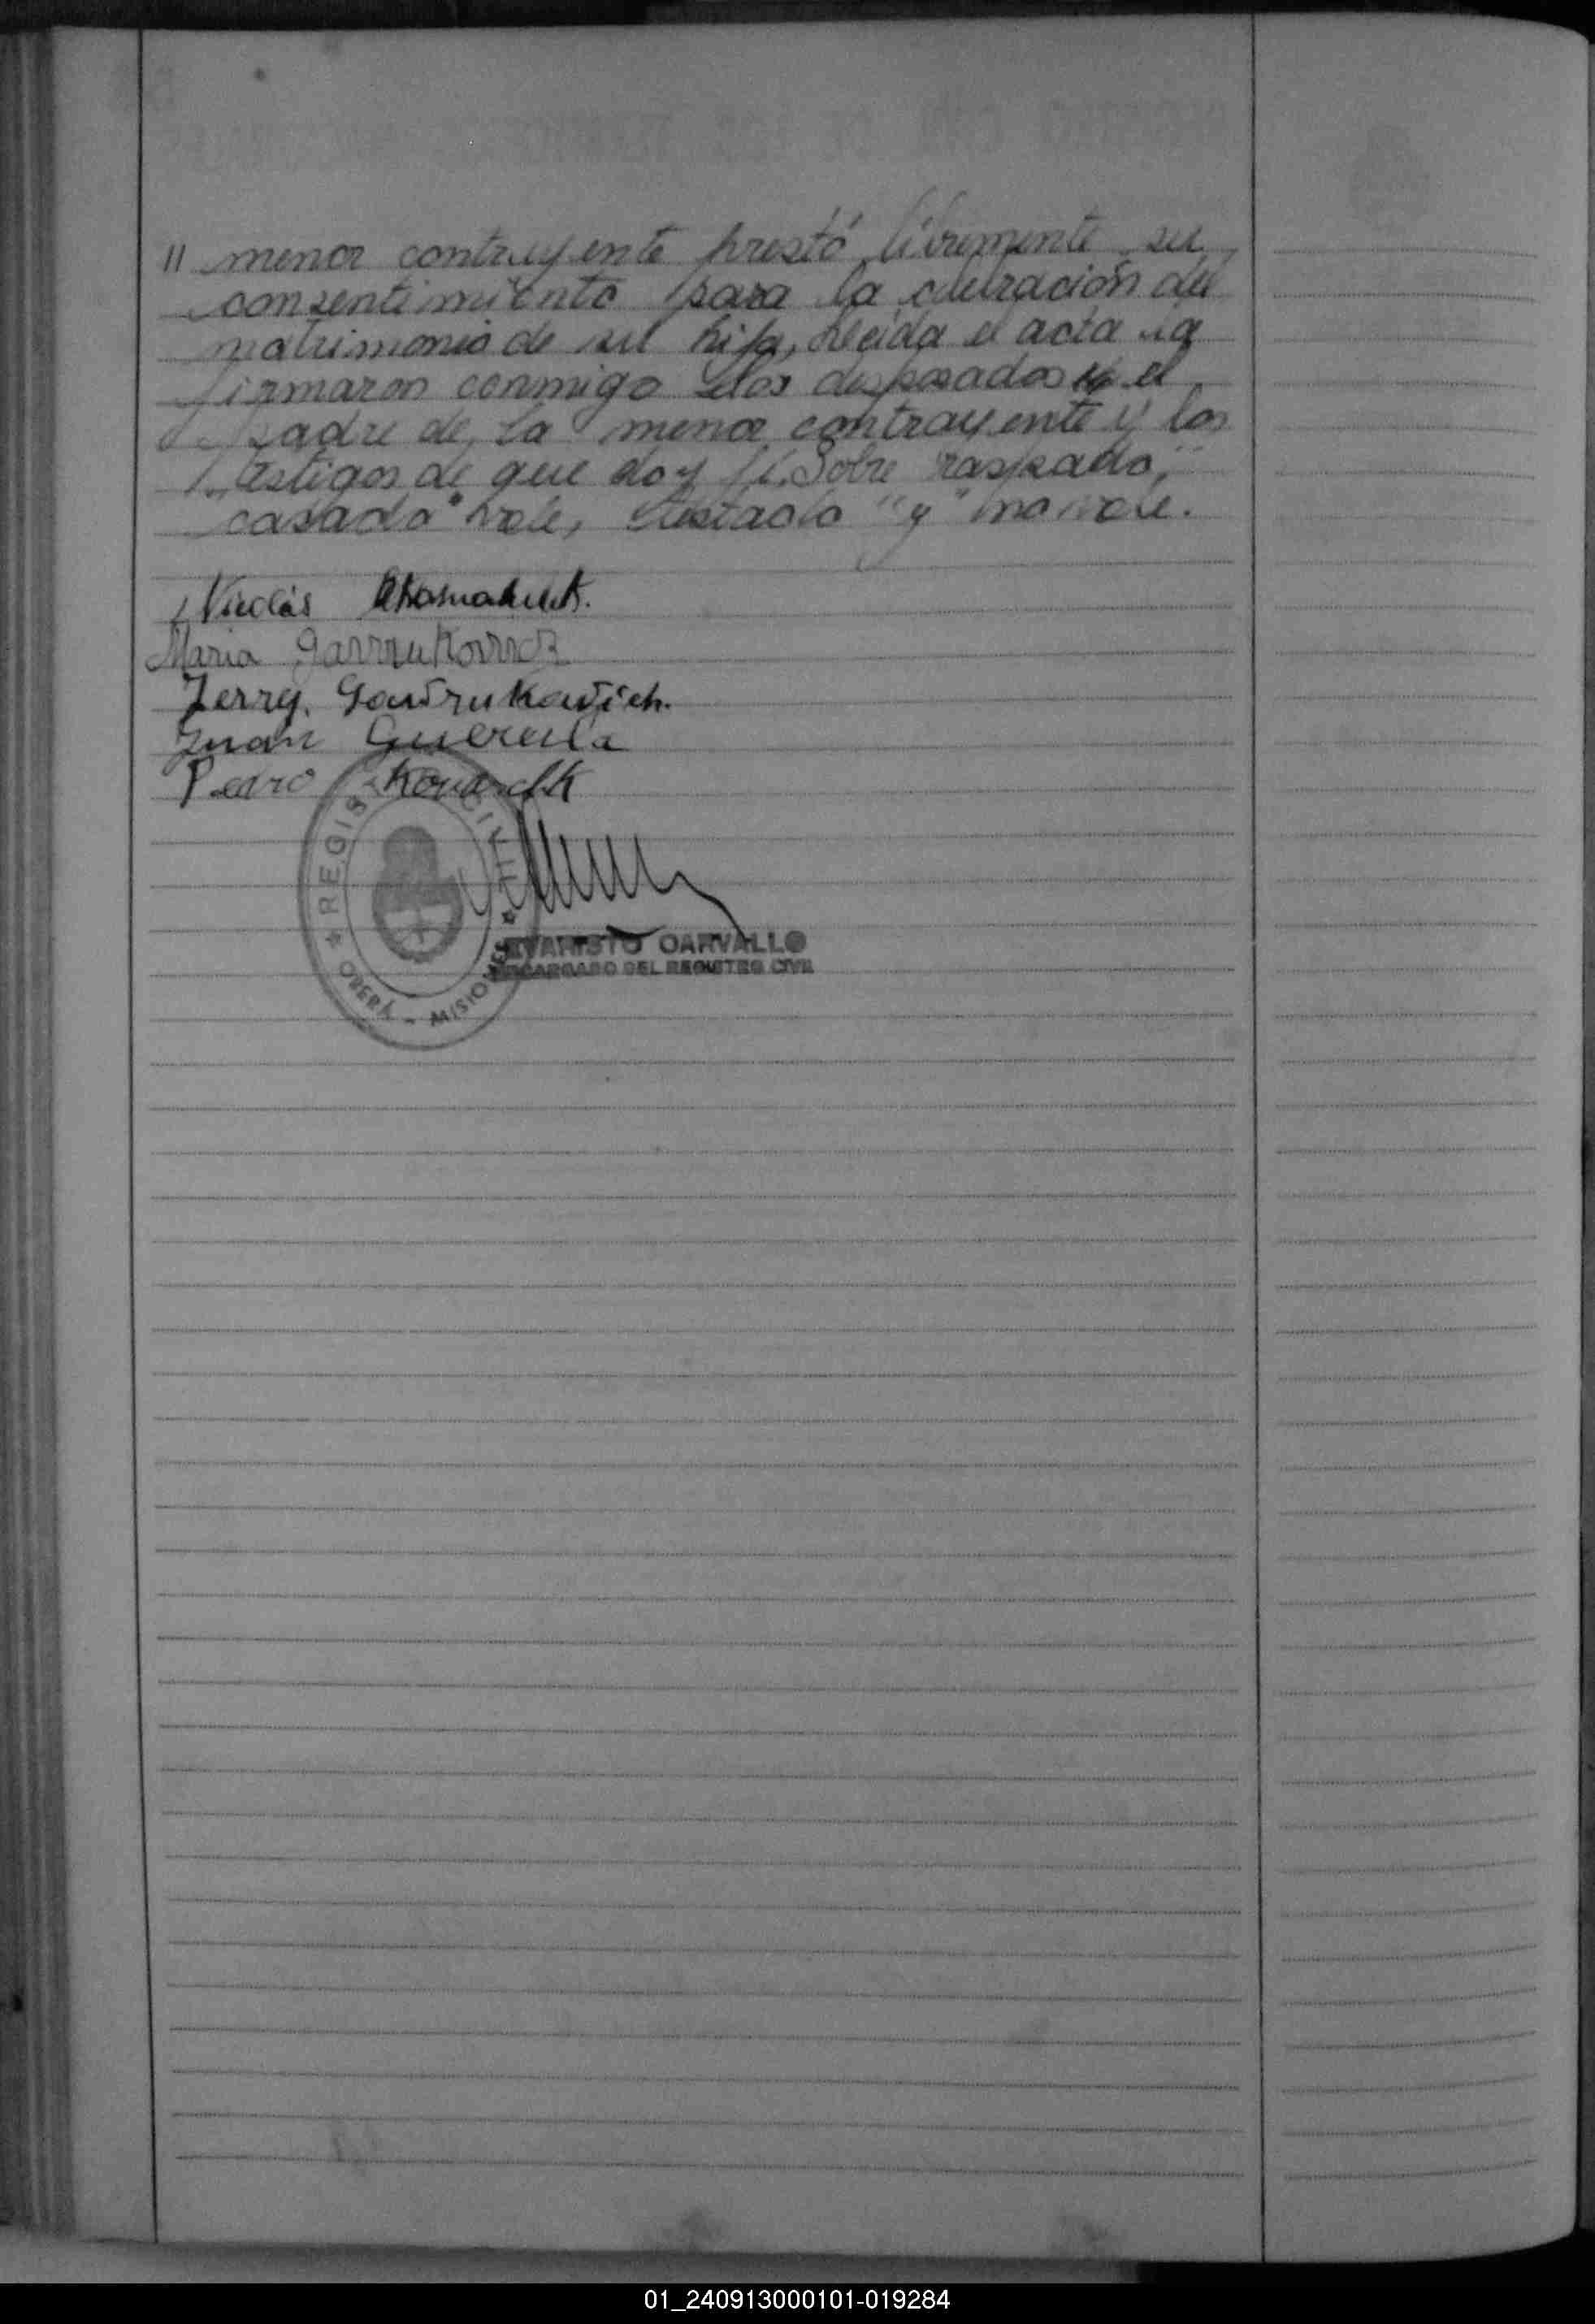 11 menor contrayente prestó libremente su
consentimiento para la celebración del
matrimonio de su hija, Leída el acta la
firmaron conmigo los desposados y el
padre de la menor contrayente y los
testigos de que doy fé. Sobre raspado,"
casado" vale, testado "y" no vale.
Nicolás
Maria
Jerry. Gavrukovich.
Juan Guerula
Pedro
REGISTRO CIVIL
OBERÁ - MISIONES
EVARISTO CARVALLO
ENCARGADO DEL REGISTRO CIVIL
01_240913000101-019284